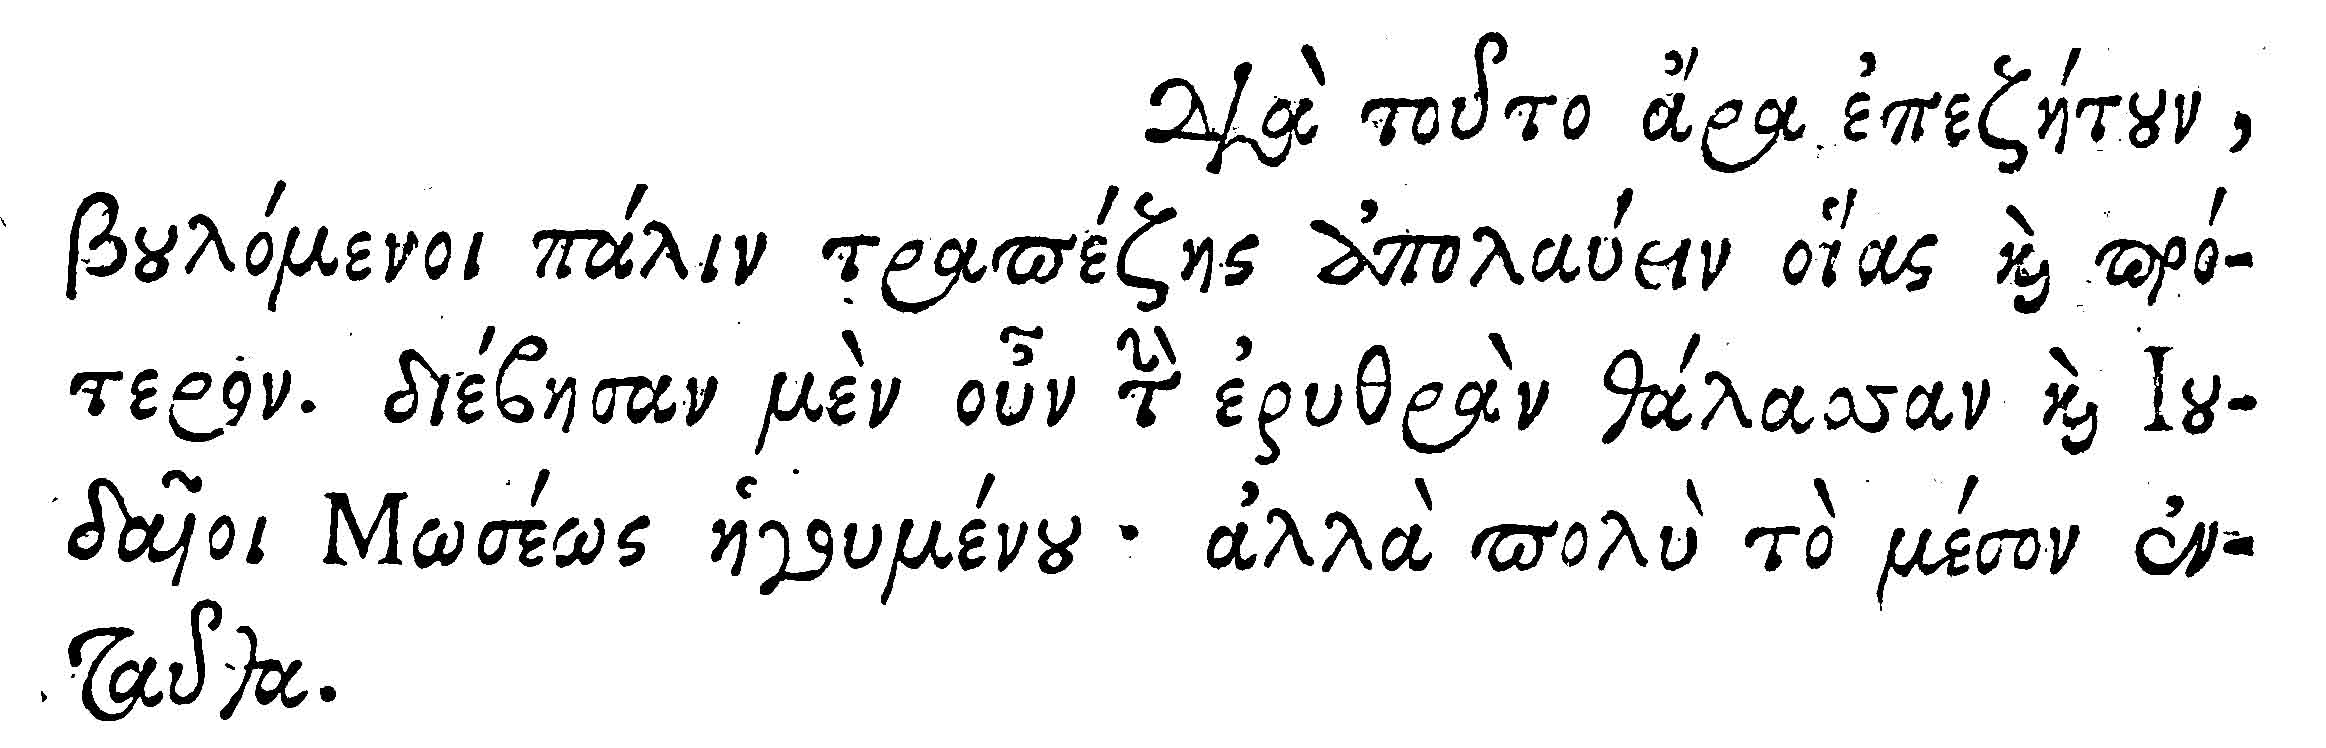 διὰ τοῦτο ἄρα ἐπεζήτουν,
βουλόμενοι πάλιν τραπέζης ἀπολαύειν οἵας καὶ πρό-
τερον. διέβησαν μὲν οὖν τὴν ἐρυθρὰν θάλασσαν καὶ Ἰου-
δαῖοι Μωσέως ἡγουμένου· ἀλλὰ πολὺ τὸ μέσον ἐν-
ταῦθα.